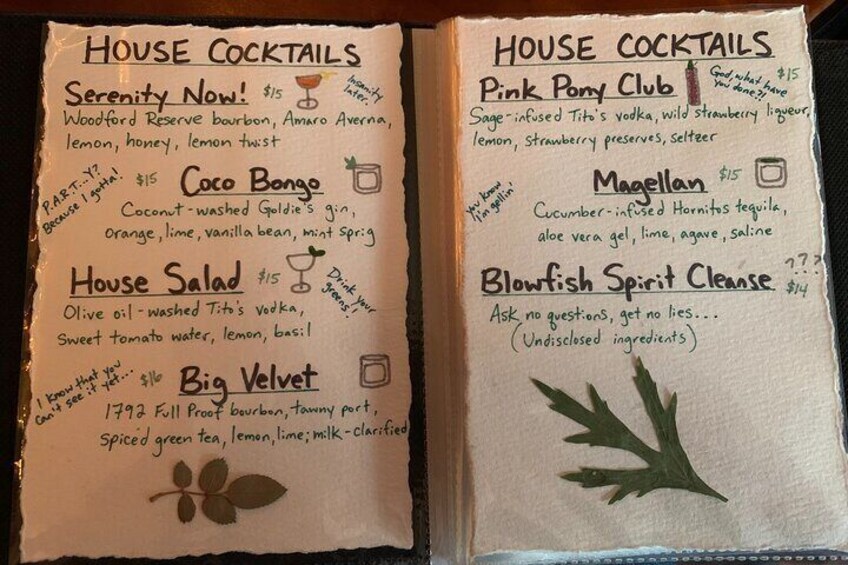 HOUSE COCKTAILS
Serenity Now! $15
Insanity
later
Woodford Reserve bourbon, Amaro Averna,
lemon, honey, lemon twist
P.A.R.T...Y?
Because I gotta!
$15 Coco Bongo
Coconut-washed Goldie's gin,
orange, lime, vanilla bean, mint sprig
House Salad $15
Drink your
greens!
Olive oil-washed Tito's vodka,
sweet tomato water, lemon, basil
I know that you
can't see it yet...
$16 Big Velvet
1792 Full Proof bourbon, tawny port,
spiced green tea, lemon, lime; milk-clarified
HOUSE COCKTAILS
Pink Pony Club $15
God, what have
you done?!
Sage-infused Tito's vodka, wild strawberry liqueur,
lemon, strawberry preserves, seltzer
you know
I'm gellin'
Magellan $15
Cucumber-infused Hornitos tequila,
aloe vera gel, lime, agave, saline
Blowfish Spirit Cleanse $14
???
Ask no questions, get no lies...
(Undisclosed ingredients)